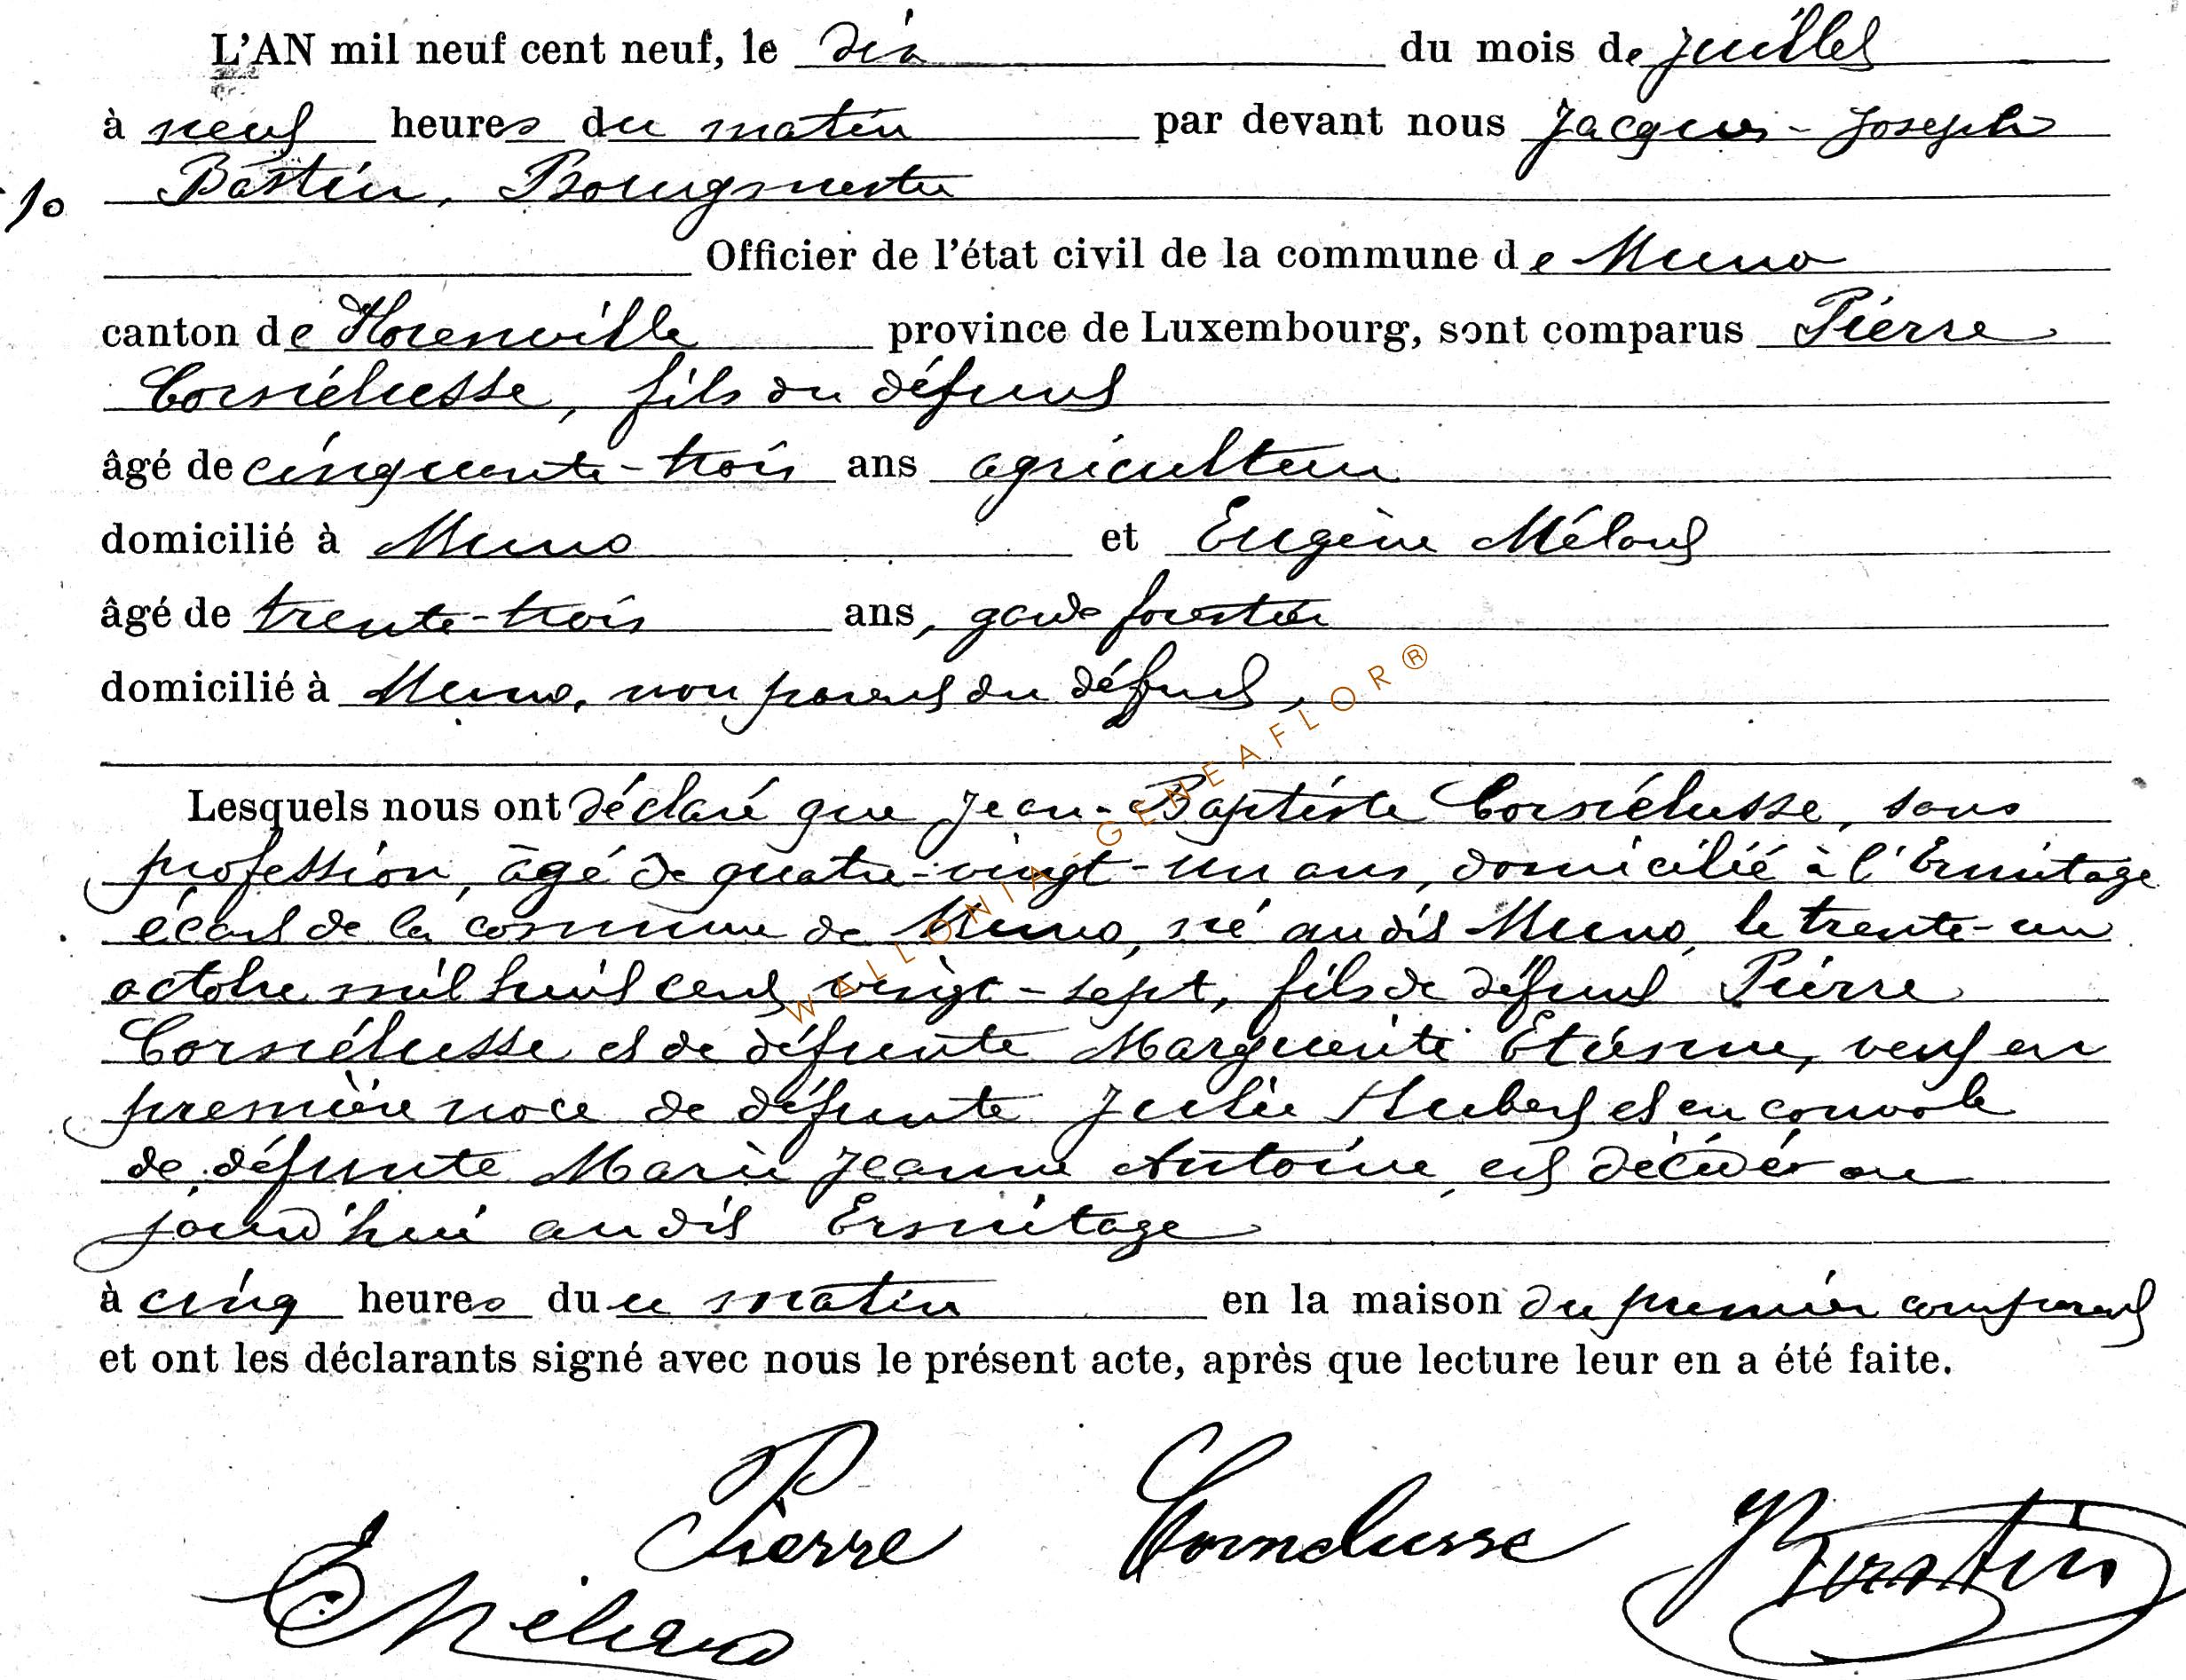 L'AN mil neuf cent neuf, le dix du mois de juillet
à neuf heures du matin par devant nous Jacques-Joseph
10 Bastin, Bourgmestre
Officier de l'état civil de la commune de Muno
canton de Florenville province de Luxembourg, sont comparus Pierre
Cornélusse, fils du défunt
âgé de cinquante-trois ans agriculteur
domicilié à Muno et Eugène
âgé de trente-trois ans, garde forestier
domicilié à Muno, non parent du défunt,
Lesquels nous ont déclaré que Jean-Baptiste Cornélusse, sans
profession, âgé de quatre-vingt-un ans, domicilié à l'Ermitage
écart de la commune de Muno, né audit Muno, le trente-un
octobre mil huit cent vingt-sept, fils de défunt Pierre
Cornélusse et de défunte Marguerite Etienne, veuf en
première noce de défunte Julie Hubert et en convole
de défunte Marie Jeanne Antoine, est décédé au
jourd'hui audit Ermitage
à cinq heures du matin en la maison du premier comparant
et ont les déclarants signé avec nous le présent acte, après que lecture leur en a été faite.
Pierre Cornelusse Bastin
WALLONIA-GENEAFLOR®